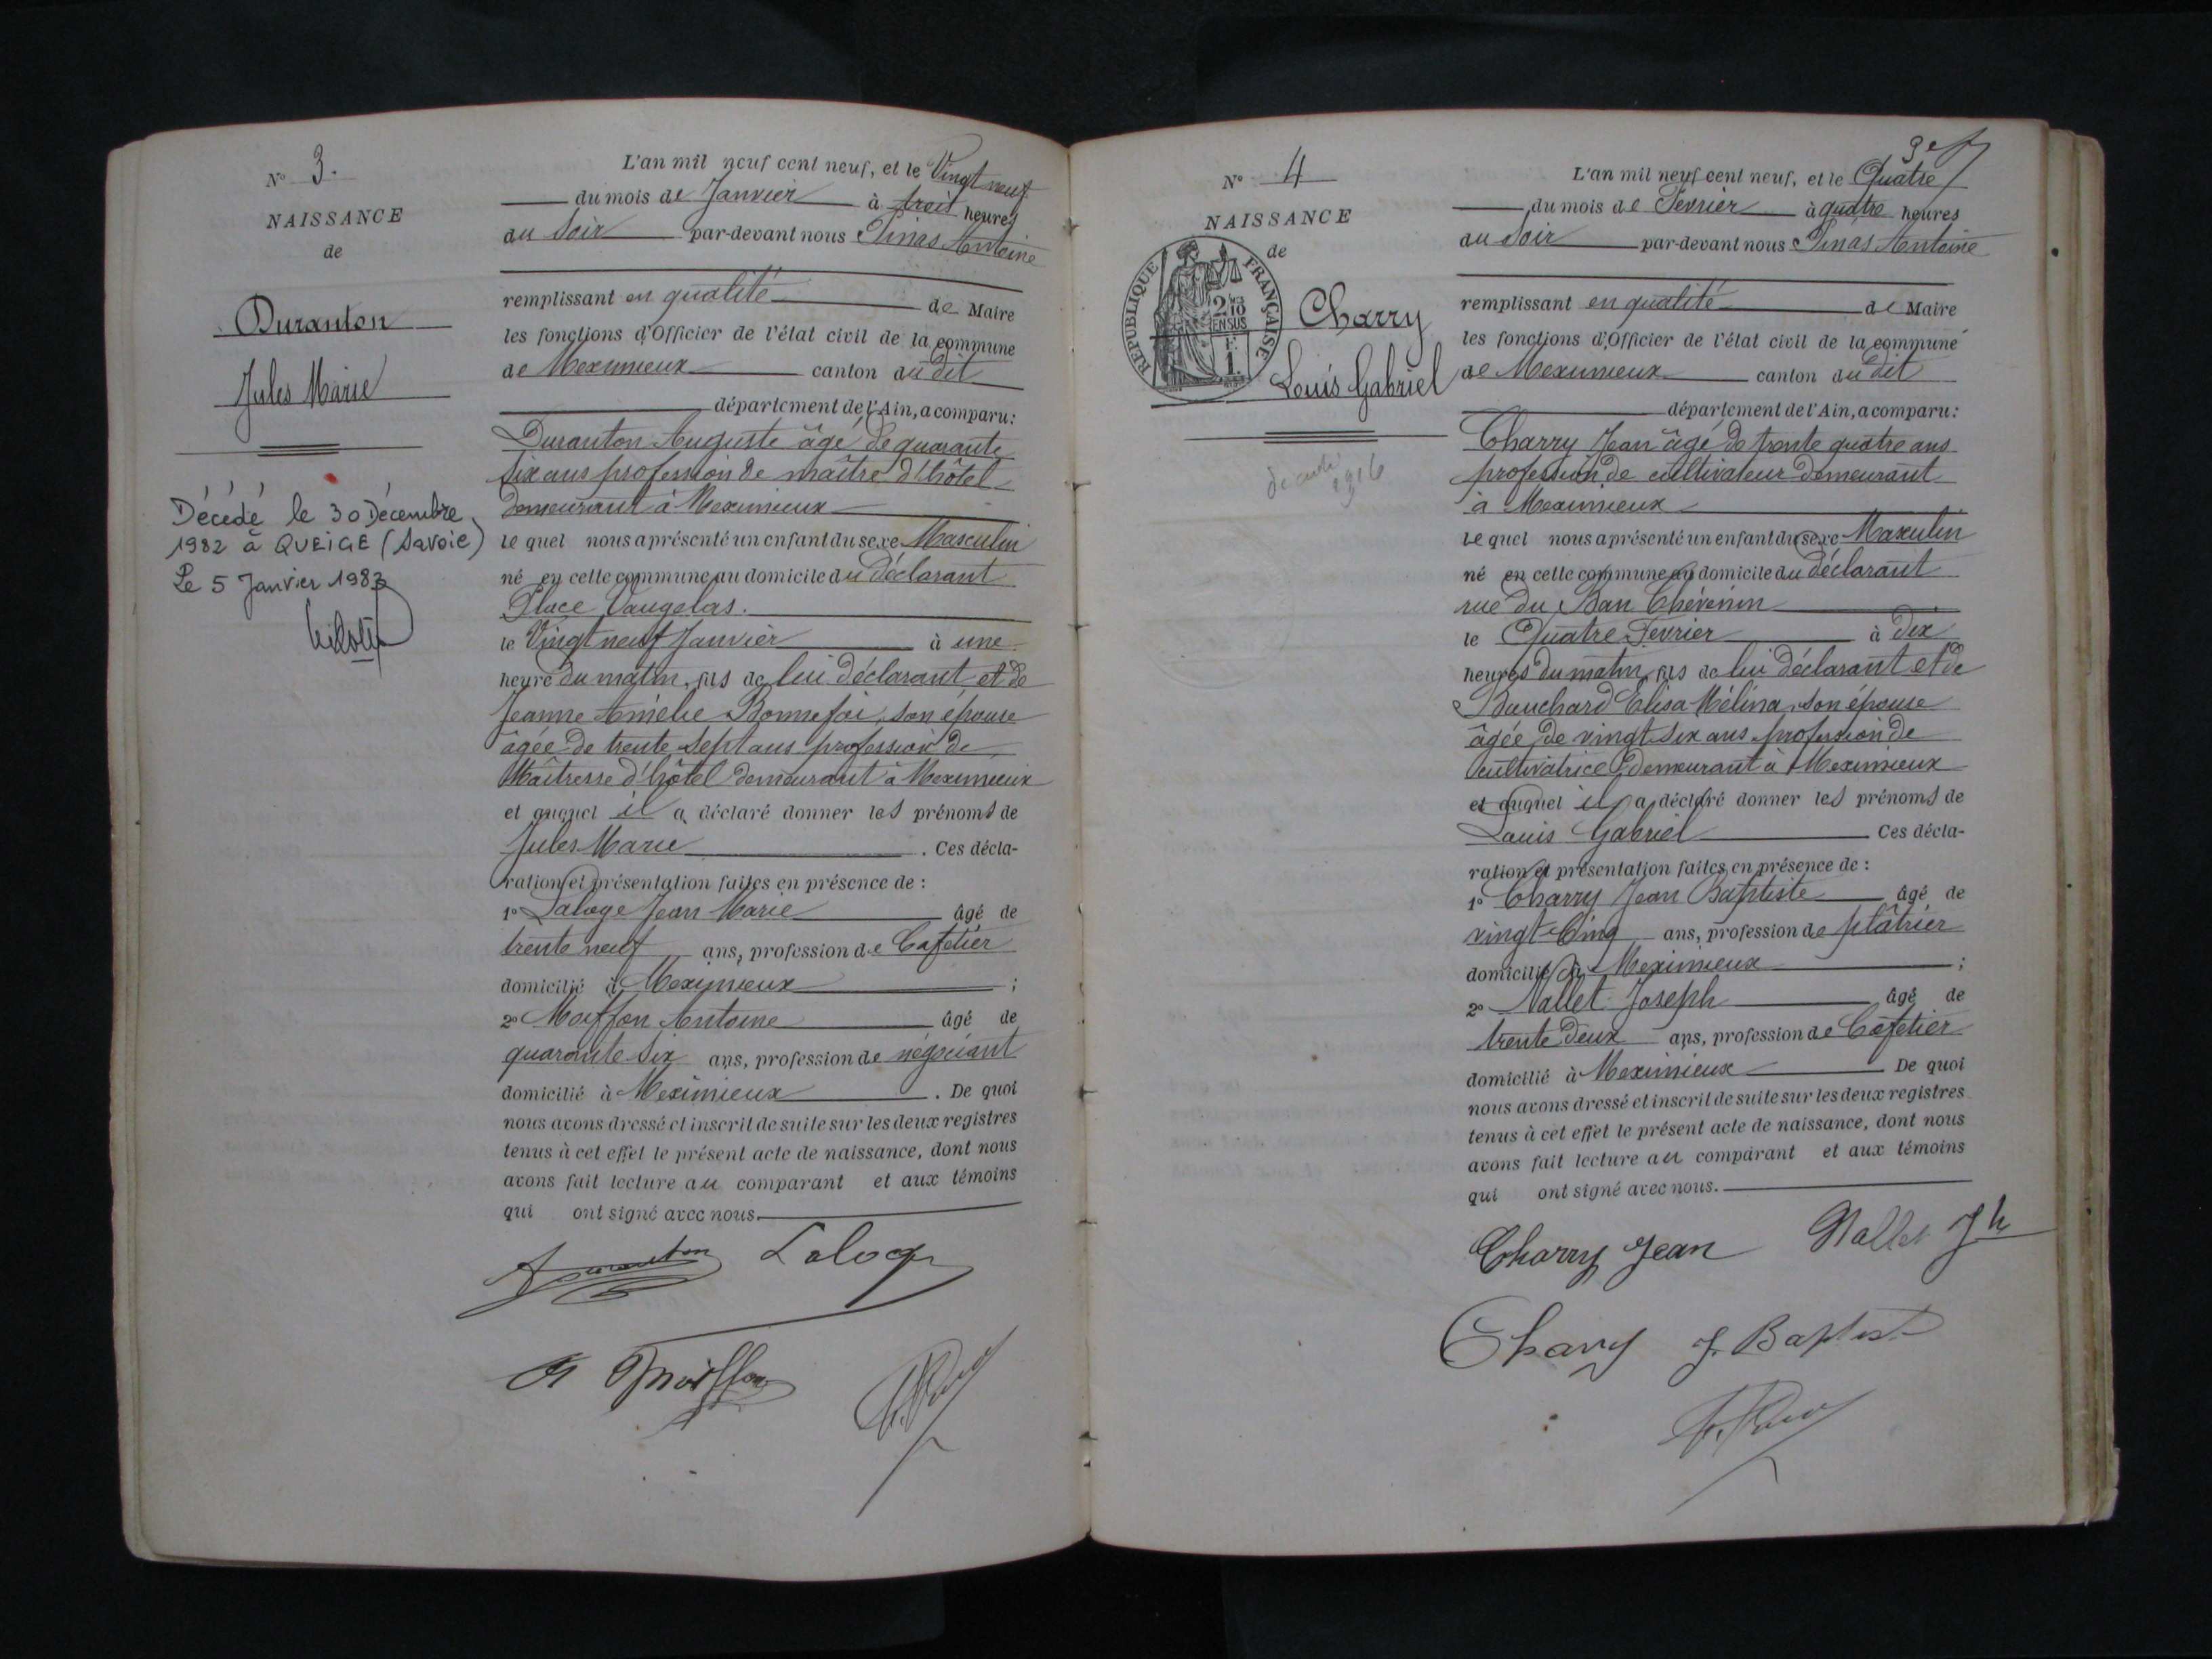 N° 3.
NAISSANCE
de
Duranton
Jules Marie
Décédé le 30 Décembre
1982 à QUEIGE (Savoie)
Le 5 Janvier 1983
L'an mil neuf cent neuf, et le Vingt neuf
du mois de Janvier à trois heures
du Soir par-devant nous Pinas Antoine
remplissant en qualité de Maire
les fonctions d'Officier de l'état civil de la commune
de Meximieux canton du dit
département de l'Ain, a comparu:
Duranton Auguste âgé de quarante
six ans profession de maître d'hôtel
demeurant à Meximieux
le quel nous a présenté un enfant du sexe Masculin
né en cette commune au domicile du déclarant
Place Vaugelas.
le Vingt neuf Janvier à une
heure du matin, fils de lui déclarant et de
Jeanne Amélie Bonnefoi, son épouse
âgée de trente sept ans profession de
Maîtresse d'hôtel demeurant à Meximieux
et auquel il a déclaré donner les prénoms de
Jules Marie . Ces décla-
ration et présentation faites en présence de :
1° Laloge Jean Marie âgé de
trente neuf ans, profession de Cafetier
domicilié à Meximieux ;
2° Moiffon Antoine âgé de
quarante six ans, profession de négociant
domicilié à Meximieux . De quoi
nous avons dressé et inscrit de suite sur les deux registres
tenus à cet effet le présent acte de naissance, dont nous
avons fait lecture au comparant et aux témoins
qui ont signé avec nous.
Duranton Laloge
A Moiffon
N° 4
NAISSANCE
de
REPUBLIQUE FRANÇAISE
2/10
EN SUS
F.
1.
Charry
Louis Gabriel
1916
3e f
L'an mil neuf cent neuf, et le Quatre
du mois de Fevrier à quatre heures
du Soir par-devant nous Pinas Antoine
remplissant en qualité de Maire
les fonctions d'Officier de l'état civil de la commune
de Meximieux canton du dit
département de l'Ain, a comparu:
Charry Jean âgé de trente quatre ans
profession de cultivateur demeurant
à Meximieux
le quel nous a présenté un enfant du sexe Masculin
né en cette commune au domicile du déclarant
rue du Ban Thévenin
le Quatre Fevrier à dix
heures du matin, fils de lui déclarant et de
Bouchard Elisa Mélina, son épouse
âgée de vingt six ans profession de
cultivatrice demeurant à Meximieux
et auquel il a déclaré donner les prénoms de
Louis Gabriel Ces décla-
ration et présentation faites en présence de :
1° Charry Jean Baptiste âgé de
vingt Cinq ans, profession de plâtrier
domicilié à Meximieux ;
2° Nallet Joseph âgé de
trente deux ans, profession de Cafetier
domicilié à Meximieux De quoi
nous avons dressé et inscrit de suite sur les deux registres
tenus à cet effet le présent acte de naissance, dont nous
avons fait lecture au comparant et aux témoins
qui ont signé avec nous.
Charry Jean Nallet Jh
Charry J. Baptist